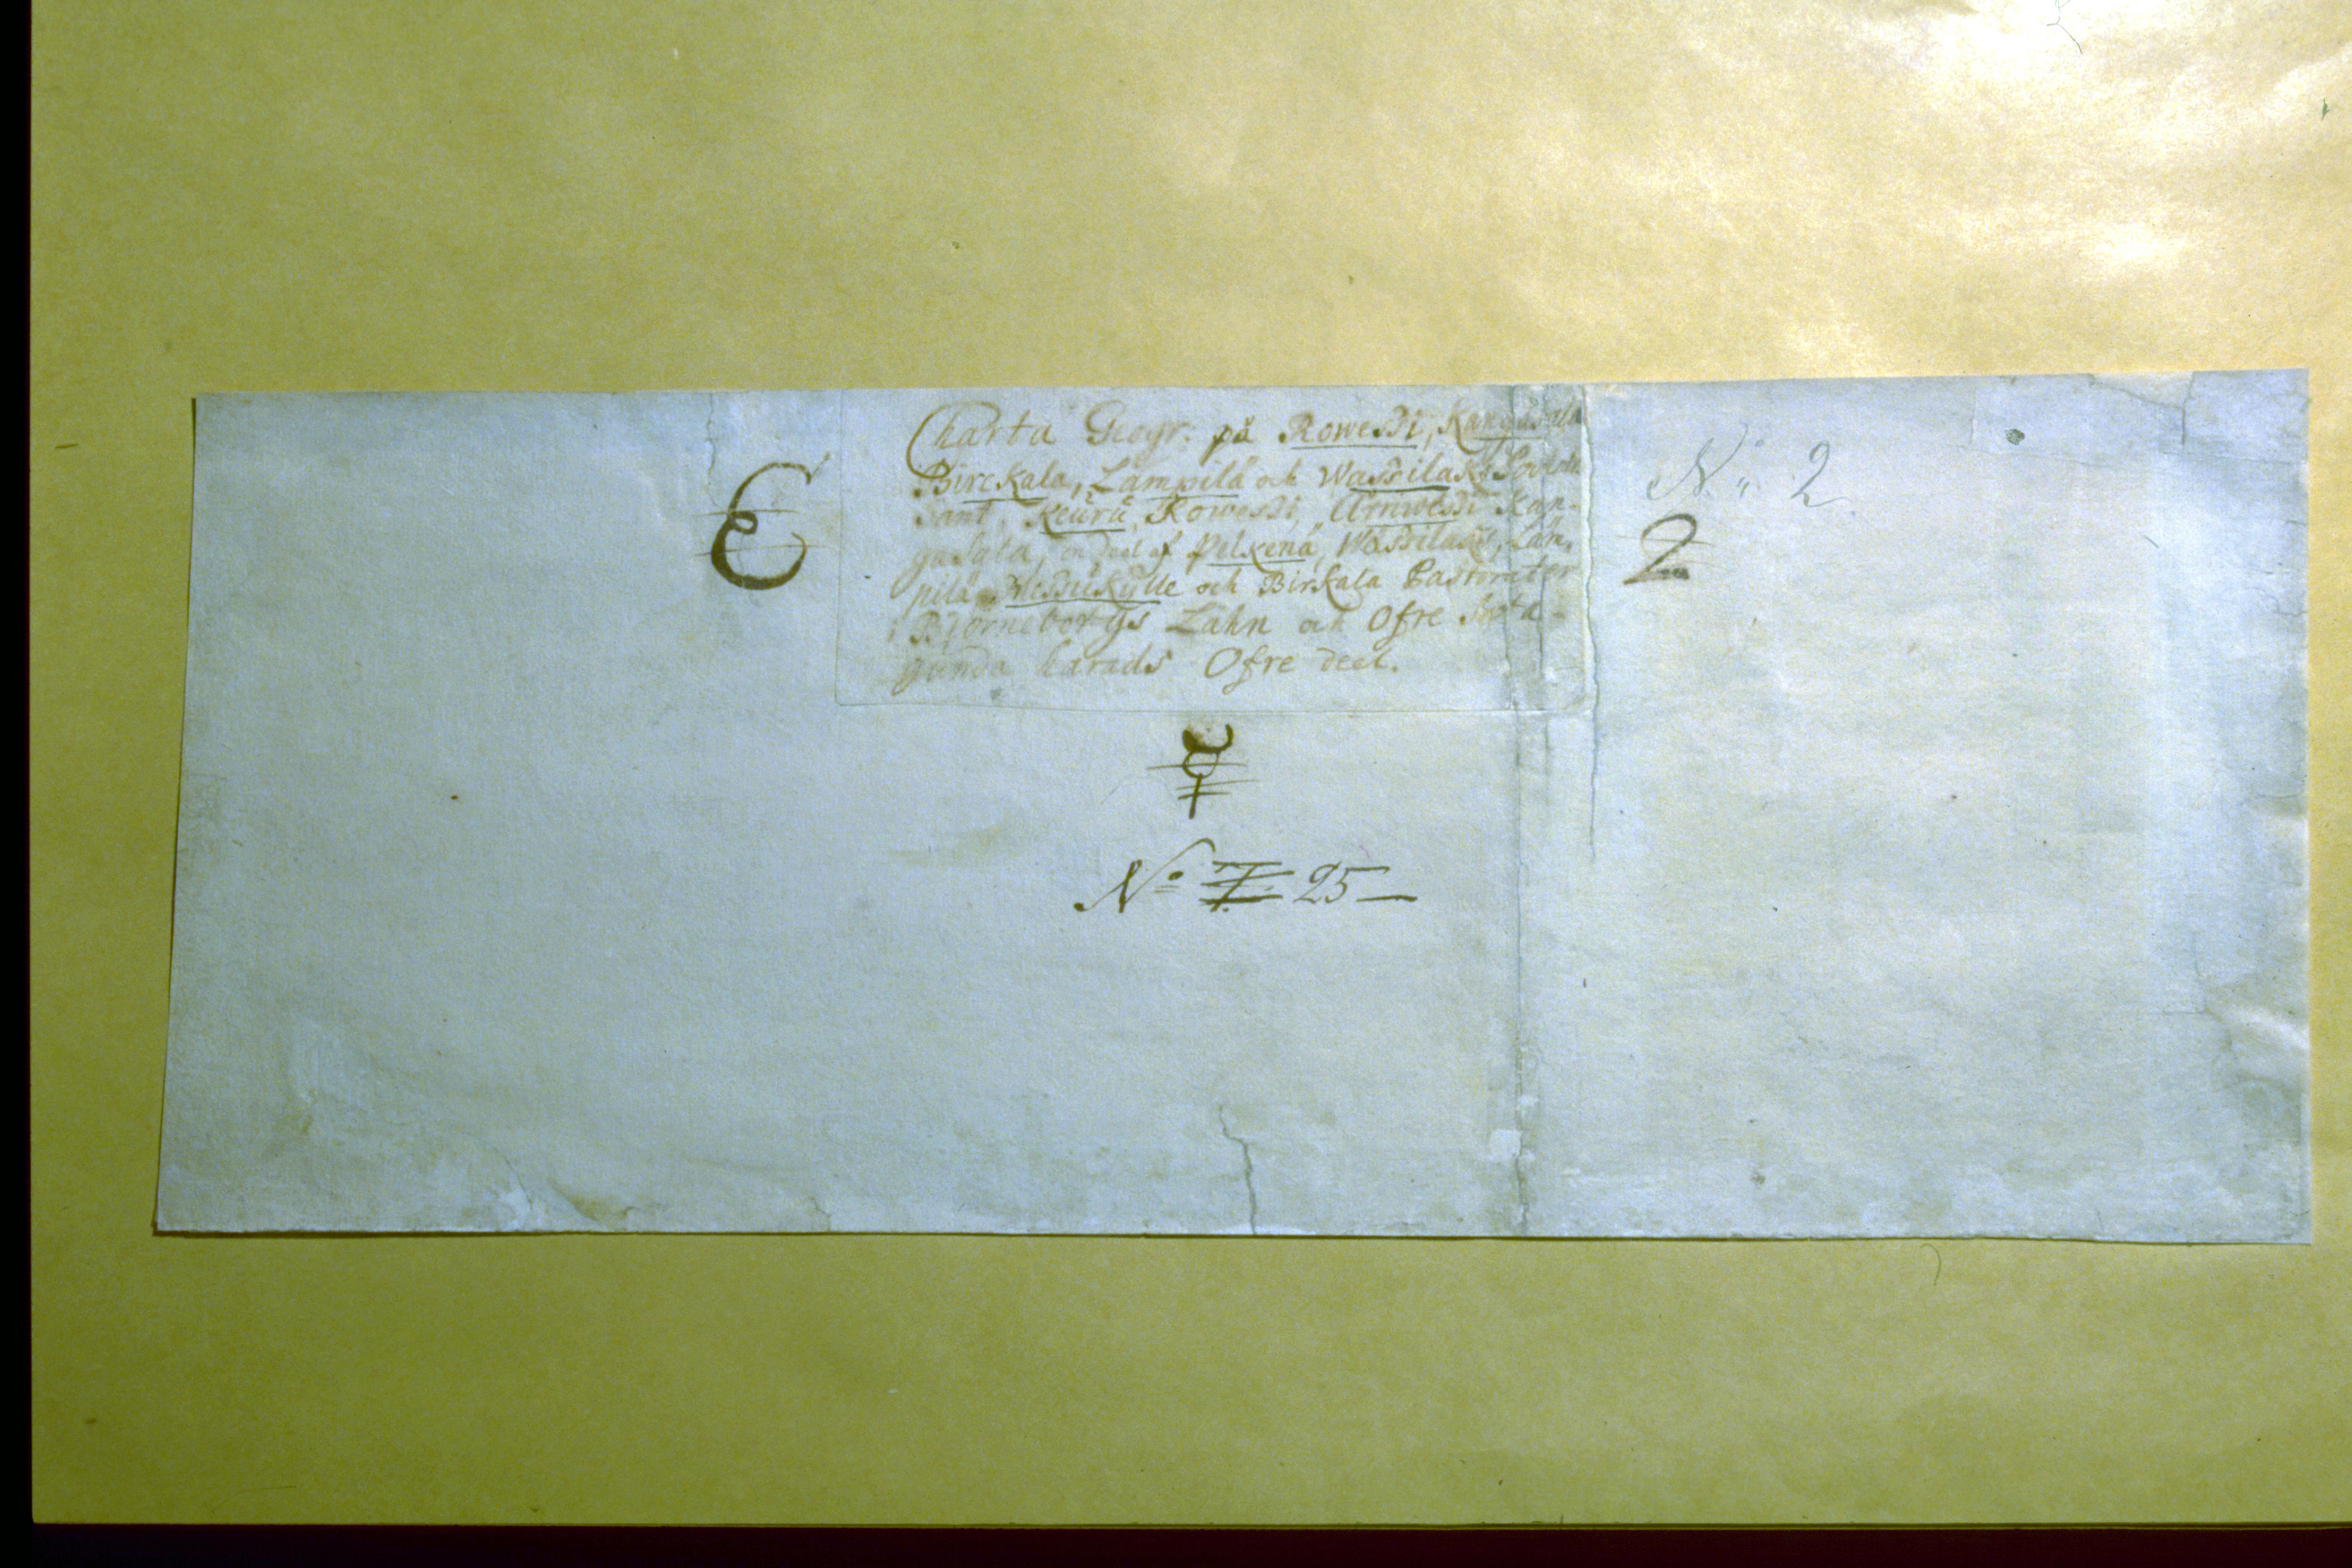 Charta Geogr: på Rowessi, Kangasala
Birckala, Lämpilä och Wassilaks Sochnar
samt, Keürü, Rowessi, Ärnwessi Kan-
gasala, en deel af Pelkenä, Wassilaks, Läm-
pilä, Messükylle och Birkala Pastorater
i Björneborgs Lähn och Ofre Sata-
gunda härads Ofre deel.
E
N:o 2
2
No 7. 25 —